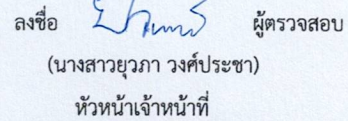 ลงชื่อ ผู้ตรวจสอบ
(นางสาวยุวภา วงศ์ประชา)
หัวหน้าเจ้าหน้าที่